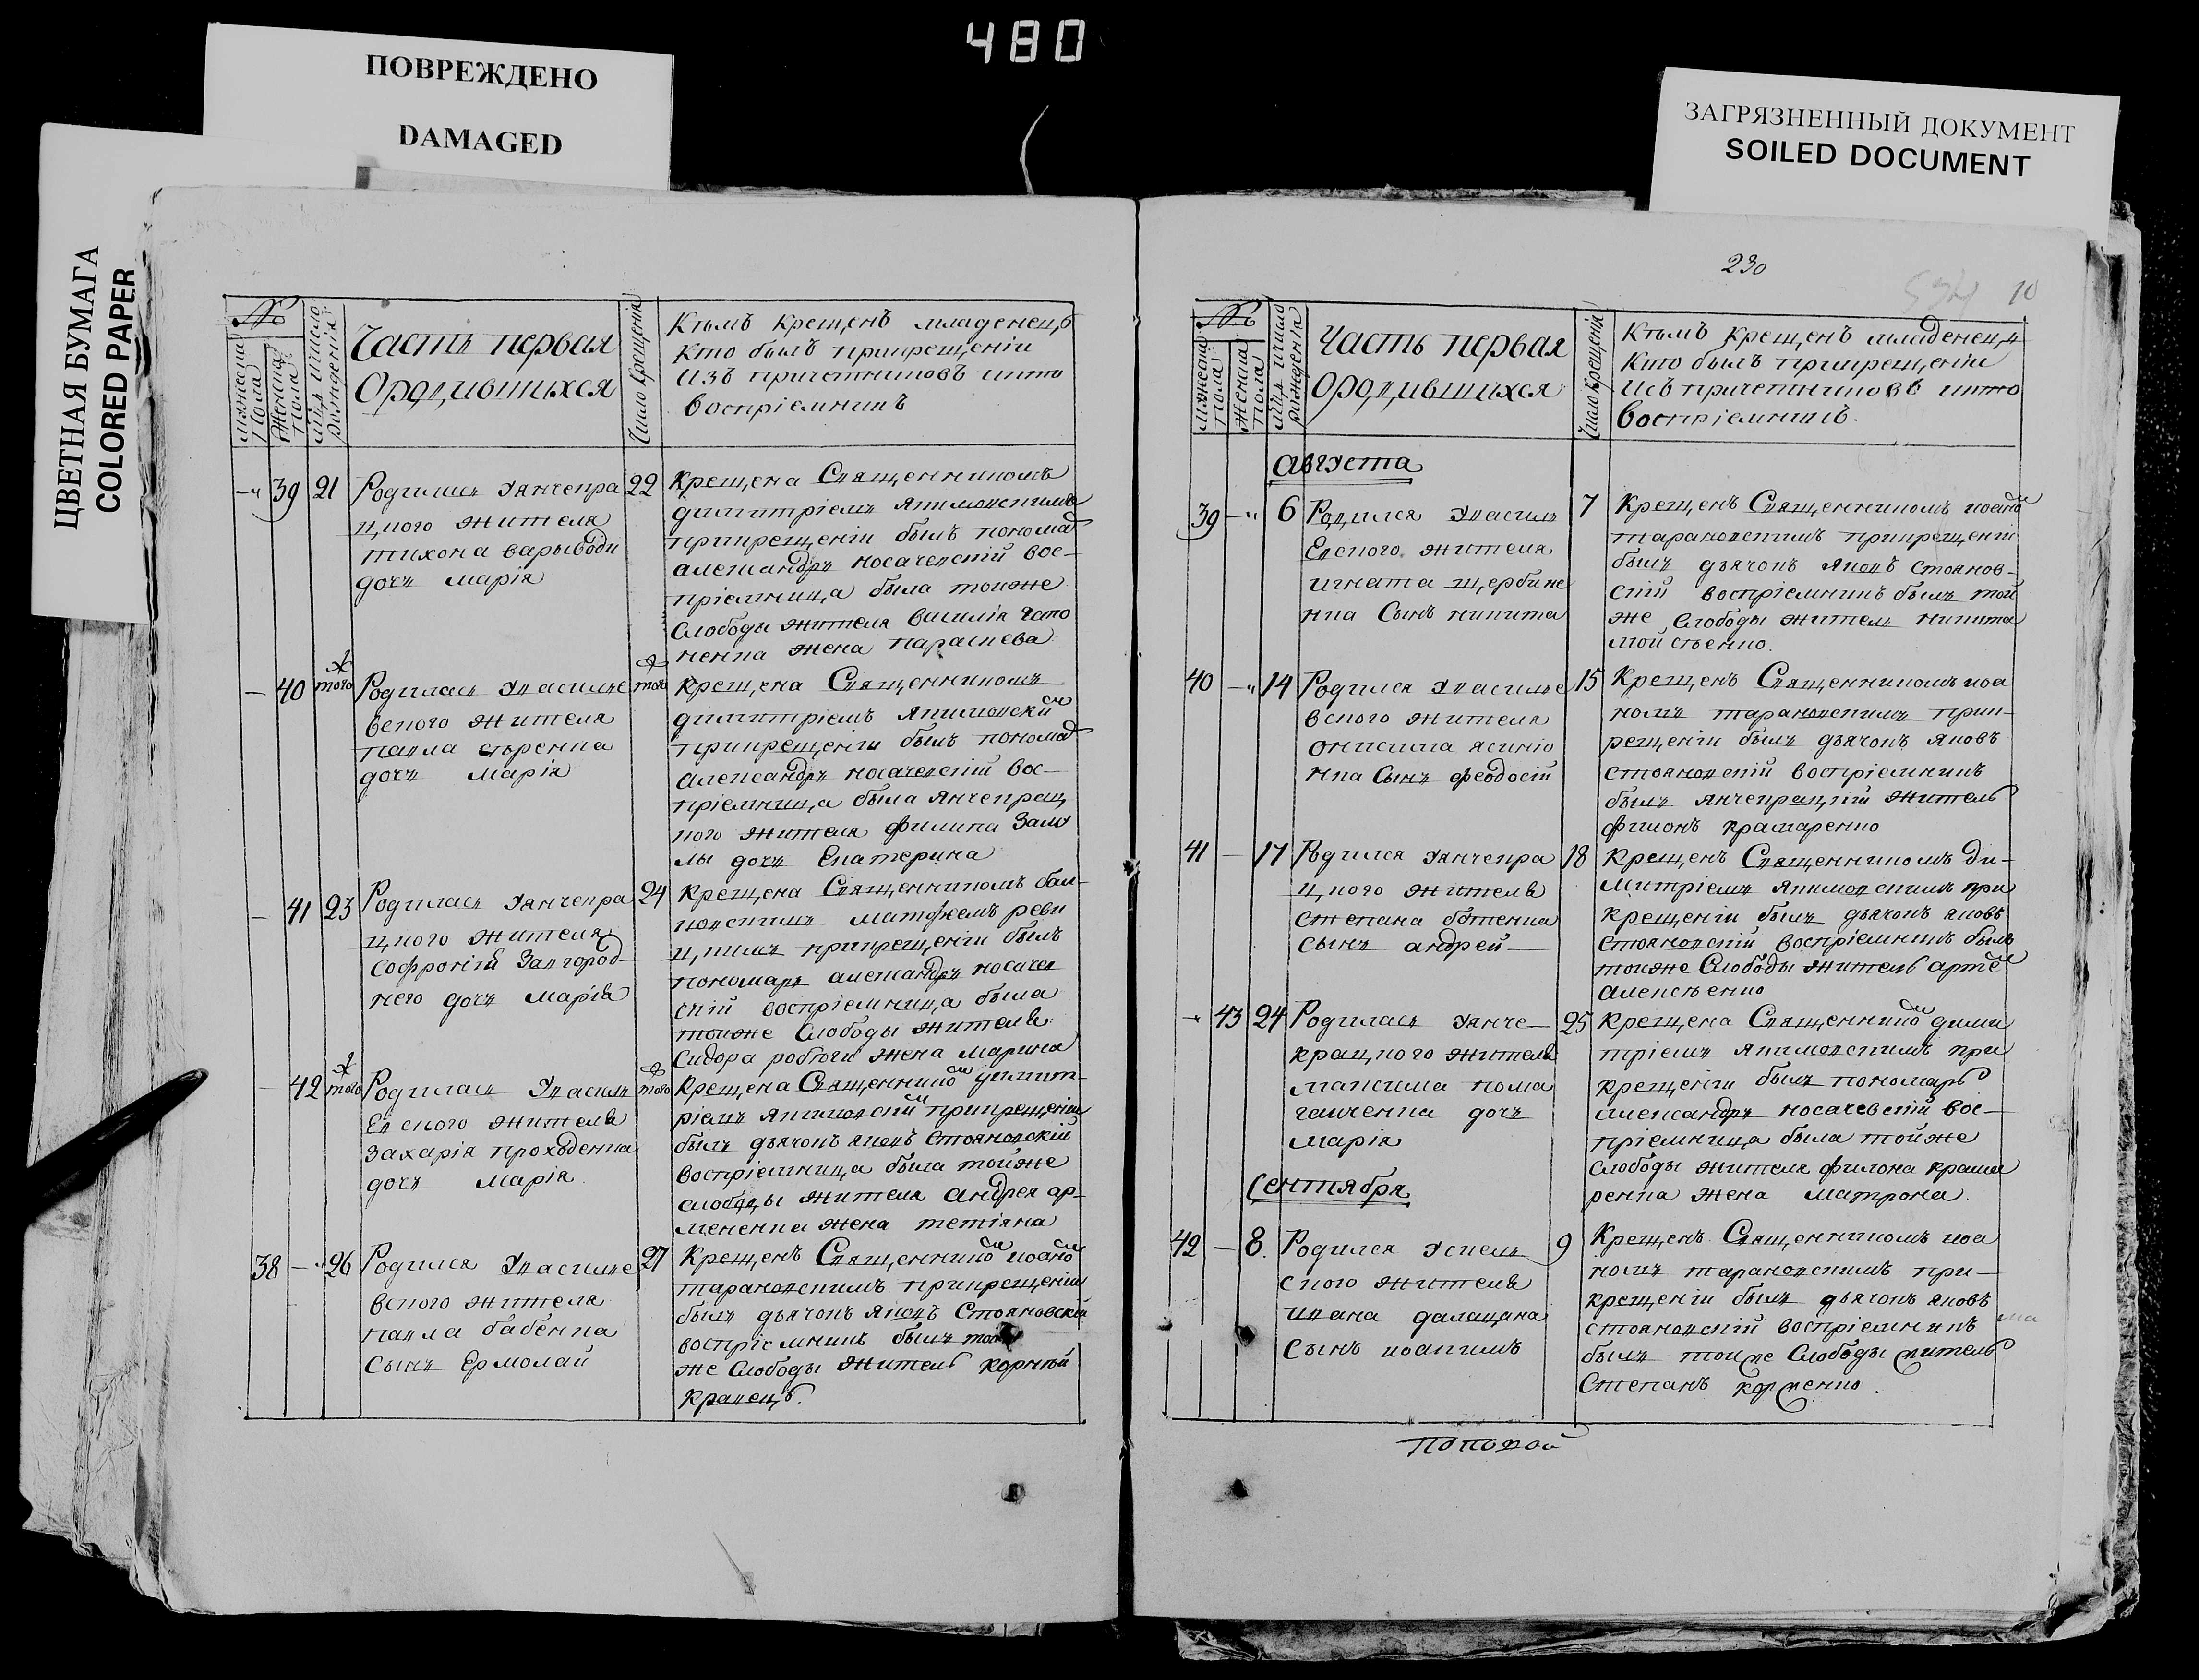 480
ПОВРЕЖДЕНО
DAMAGED
ЦВЕТНАЯ БУМАГА
COLORED PAPER
ЗАГРЯЗНЕННЫЙ ДОКУМЕНТ
SOILED DOCUMENT
№
мужеска пола
женска пола
число рожденія
Часть первая
Ородившихся
Число крещенія
Кѣмъ крещенъ младенецъ
кто былъ прикрещеніи
изъ причетниковъ икто
воспріемникъ
39 21 Родилась Уянчекра
цкого жителя
тихона варыводи
дочь марія
22 крещена Священникомъ
димитріемъ Якимовскимъ
прикрещеніи былъ пономар
александръ носачевскій вос-
пріемница была тоиже
слободы жителя василія
ненка жена параскева
40 того Родилась Увасилье
вского жителя
павла
дочь марія
того крещена Священникомъ
димитріемъ Якимовский
прикрещеніи былъ пономар
александръ носачевскій вос-
пріемница была Янчекрац
кого жителя филипа
дочь Екатерина
41 23 Родилась Уянчекра
цкого жителя
Софронія Завгород-
него дочь марія
24 крещена Священникомъ бал-
ковскимъ матфемъ реви
цкимъ прикрещеніи былъ
пономарь александръ носачев
скій воспріемница была
тоиже Слободы жителя
Сидора жена марина
42 того Родилась Увасиль
Евского жителя
Захарія проходенка
дочь марія
того крещена Священнико димит-
ріемъ Якимовскій прикрещеніи
былъ дьячокъ яковъ Стояновскій
воспріемница была тоиже
слободы жителя андрея ар-
мененка жена тетіяна
38 26 Родился Увасилье
вского жителя
павла бабенка
Сынъ Ермолай
27 Крещенъ Священнико иоано
тарановскимъ прикрещеніи
былъ дьячокъ яковъ Стояновскій
воспріемникъ былъ той
же Слободы житель корнѣй
кравецъ.
230
10
№
мужеска пола
женска пола
число рожденія
Часть первая
Ородившихся
Число крещенія
Кѣмъ крещенъ младенецъ
Кто былъ прикрещеніи
Изъ причетниковъ икто
воспріемникъ.
августа
39 6 Родился Увасиль
Евского жителя
игната щербине
нка Сынъ никита
7 крещенъ Священникомъ иоано
тарановскимъ прикрещеніи
былъ дьячокъ яковъ стоянов-
скій воспріемникъ былъ той
же слободы житель никита
40 14 Родился Увасилье
вского жителя
онисима
нка Сынъ феодосій
15 крещенъ Священникомъ иоа
номъ тарановскимъ прик-
рещеніи былъ дьячокъ яковъ
стояновскій воспріемникъ
былъ янчекрацкій житель
филонъ крамаренко
41 17 Родился Уянчекра
цкого жителя
степана
сынъ андрей
18 крещенъ Священникомъ ди-
митріемъ Якимовскимъ при
крещеніи былъ дьячокъ яковъ
стояновскій воспріемникъ былъ
тоиже Слободы житель артем
алексѣенко
43 24 Родилась Уянче-
крацкого жителя
максима
дочь
марія
25 крещена Священнико дими
тріемъ Якимовскимъ при
крещеніи былъ пономарь
александръ носачевскій вос-
пріемница была тойже
слободы жителя филона крама
ренка жена матрона.
Сентября
42 8. Родился Ускель
ского жителя
ивана
Сынъ иоакимъ
9 крещенъ Священникомъ иоа
номъ тарановскимъ при-
крещеніи былъ дьячокъ яковъ
стояновскій воспріемникъ
былъ тоиже Слободы житель
Степанъ корженко.